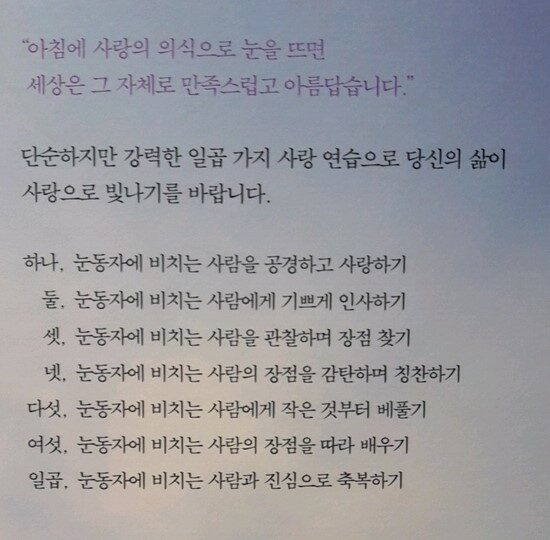 “아침에 사랑의 의식으로 눈을 뜨면
세상은 그 자체로 만족스럽고 아름답습니다.”
단순하지만 강력한 일곱 가지 사랑 연습으로 당신의 삶이
사랑으로 빛나기를 바랍니다.
하나, 눈동자에 비치는 사람을 공경하고 사랑하기
둘, 눈동자에 비치는 사람에게 기쁘게 인사하기
셋, 눈동자에 비치는 사람을 관찰하며 장점 찾기
넷, 눈동자에 비치는 사람의 장점을 감탄하며 칭찬하기
다섯, 눈동자에 비치는 사람에게 작은 것부터 베풀기
여섯, 눈동자에 비치는 사람의 장점을 따라 배우기
일곱, 눈동자에 비치는 사람과 진심으로 축복하기